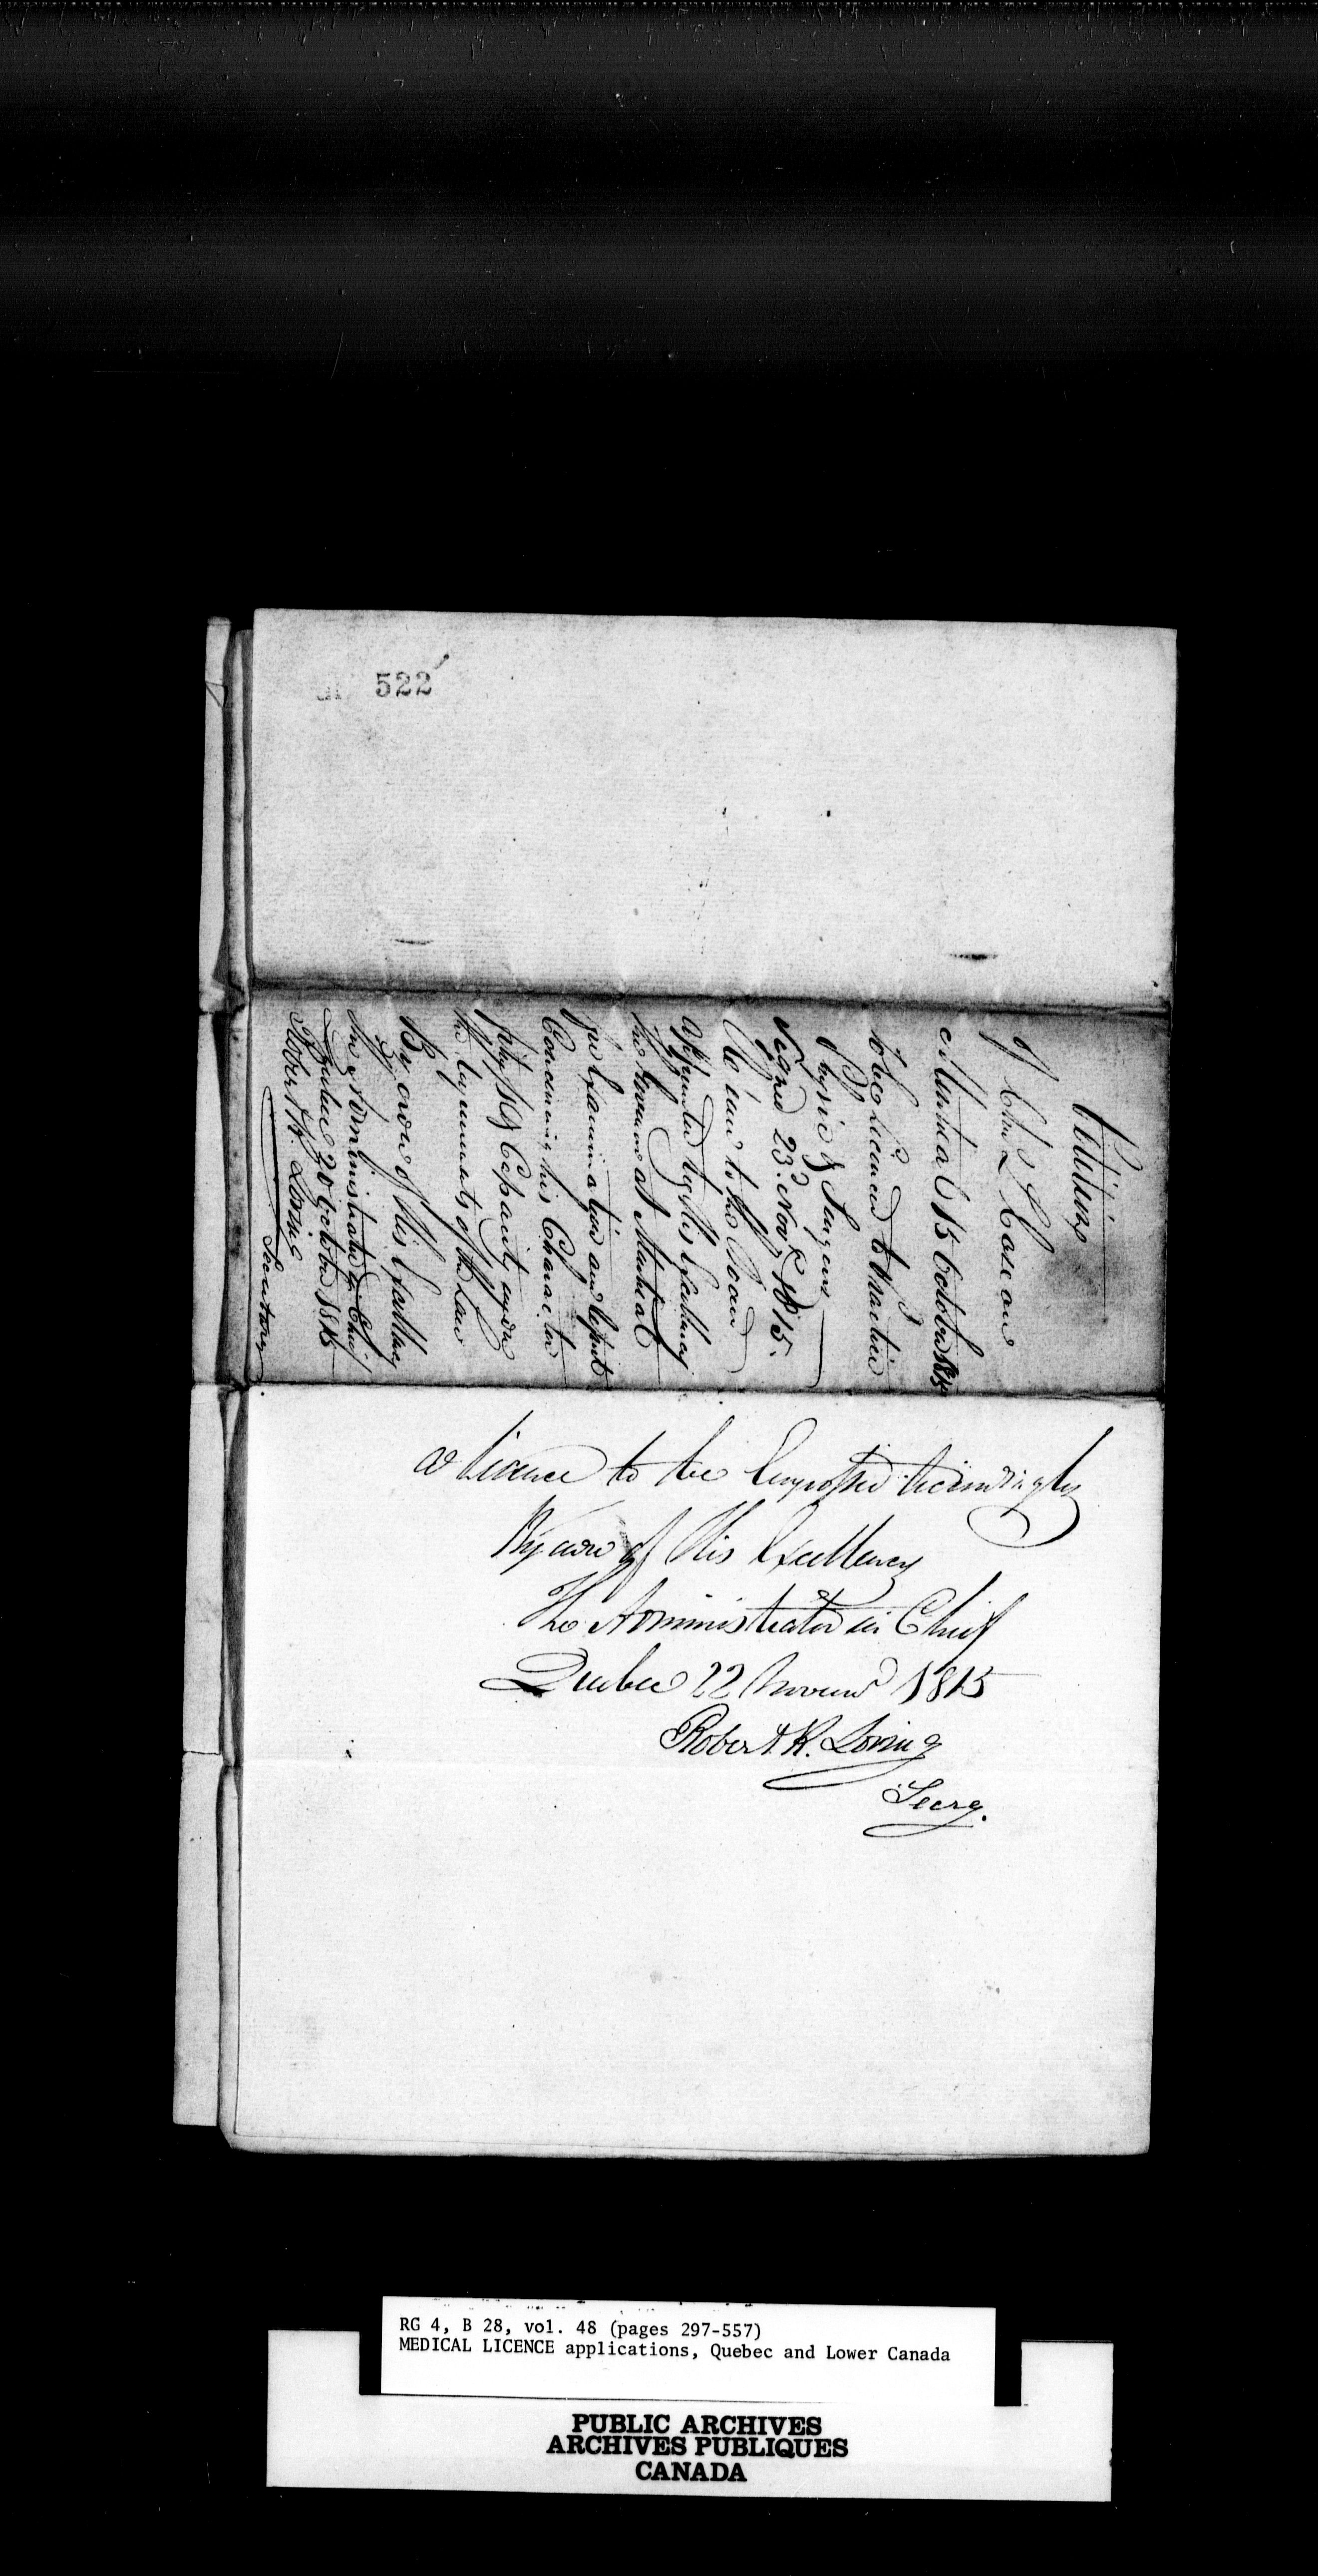 522
Petition
of Chs L. Caseau
Montreal 15 October 1815
to be Licenced to Practice
Physic & Surgery
Signed 23d. Novr. 1815.
to the Board
Appointed by His Excellency
the Governor at Montreal
for Examination and Report
Concerning his Character
fitness & Capacity under
the requirements of the Law
By order of His Excellency
The Administrator in Chief
Quebec 20 October 1815
Robert R. Loring
Secretary
a Licence to be Engrossed accordingly
By order of His Excellency
The Administrator in Chief
Quebec 22 Novemr 1815
Robert R. Loring
Secry.
RG 4, B 28, vol. 48 (pages 297-557)
MEDICAL LICENCE applications, Quebec and Lower Canada
PUBLIC ARCHIVES
ARCHIVES PUBLIQUES
CANADA